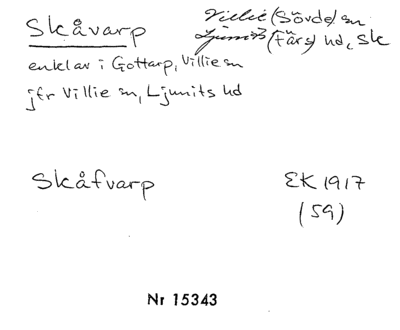 Skåvarp
Villie (Sövde) sn
Ljunits (Färs) hd, Sk
enklav i Gottarp, Villie sn
jfr Villie sn, Ljunits hd
Skåfvarp
EK 1917
(59)
Nr 15343